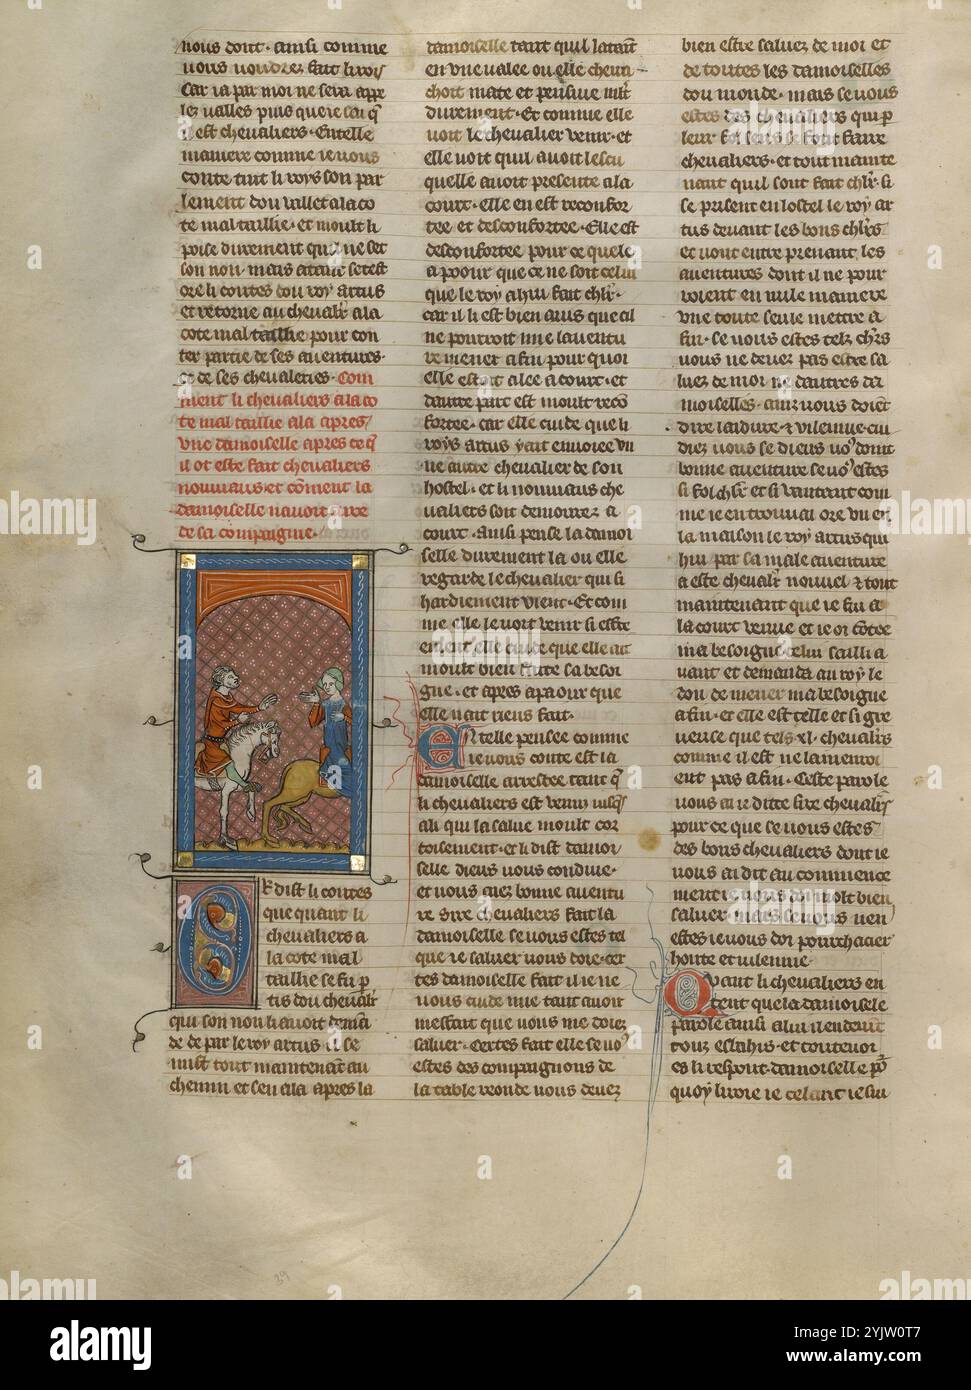 nous dont. ainsi comme
uous uoudrez fait li rois
Car ia par moi ne sera appe
lez ualles puis que ie sai q̄
il est cheualiers. En telle
maniere comme ie uous
conte tint li roys son par
lement dou uallet a la co
te mal taillie. et moult li
poise durement qui ne set
son non. mais atant se test
ore li contes dou roy artus
et retorne au cheualr a la
cote mal taillie pour con
ter partie de ses auentures.
et de ses cheualeries. Com
ment li cheualiers a la co
te mal taillie ala apres
vne damoiselle apres ce q̄
il ot este fait cheualiers
nouuiaus et cōment la
damoiselle n auoit cure
de sa compaignie.
OR dist li contes
que quant li
cheualiers a
la cote mal
taillie se fu p
tis dou cheualr
qui son non li auoit demā
de de par le roy artus il se
mist tout maintenant au
chemin et sen ala apres la
damoiselle tant quil lataīt
en vne ualee ou elle cheuau
choit mate et pensiue mlt
durement. Et comme elle
uoit le cheualier uenir. et
elle uoit quil auoit lescu
quelle auoit presente a la
court. elle en est reconfor
tee et desconfortee. Elle est
desconfortee pour ce quele
a poour que ce ne soit celui
que le roy a hui fait chlr.
car il li est bien auis que cil
ne pourroit mie lauentu
re mener a fin pour quoi
elle estoit alee a court. et
dautre part est moult recō
fortee. car elle cuide que li
roys artus y ait enuoiee vn
ne autre cheualier de son
hostel. et li nouuiaus che
ualiers soit demourez a
court. Ainsi pense la damoi
selle durement la ou elle
regarde le cheualier qui si
hardiement vient. Et com
me elle le uoit venir si esfre
ement elle cuide que elle ait
moult bien faite sa besoi
gne. et apres a paour que
elle n ait riens fait.
EN telle pensee comme
ie uous conte est la
damoiselle arrestee tant q̄
li cheualiers est venu iusq̄s
a li qui la salue moult cor
toisement. et li dist damoi
selle dieus uous conduie.
et uous aiez bonne auentu
re Sire cheualiers fait la
damoiselle se uous estes tel
que ie saluer uous doie. cer
tes damoiselle fait il ie ne
uous cuide mie tant auoir
mesfait que uous me doiez
saluer. Certes fait elle se uoˢ
estes des compaignons de
la table reonde uous deuez
bien estre saluez de moi et
de toutes les damoiselles
dou monde. mais se uous
estes des cheualiers qui p
leur fol sens se font faire
cheualiers. et tout mainte
nant quil sont fait chlr. si
se prisent en lostel le roy ar
tus deuant les bons chlrs
et uont entreprenant les
auentures dont il ne pour
roient en mile maniere
vne toute seule mettre a
fin. se uous estes telz chlrs
uous ne deuez pas estre sa
luez de moi ne dautres da
moiselles. ainz uous doit
dire laidure et vilennie. cui
diez uous se dieus uoˢ doint
bonne auenture se uoˢ estes
si fol chlr et si vantant com
me ie en trouuai ore vn en
la maison le roy artus qui
hui par sa male auenture
a este cheualr nouuel et tout
maintenant que ie fui a
la court venue et ie oi cōtee
ma besoigne celui sailli a
uant et demanda au roy le
don de mener ma besoigne
a fin. et elle est telle et si gre
ueuse que telz .xl. cheualrs
comme il est ne la menroi
ent pas a fin. Ceste parole
uous ai ie ditte sire cheualrs
pour ce que se uous estes
des bons cheualiers dont ie
uous ai dit au commence
ment ie uous doi molt bien
saluer. mais se uous n en
estes ie uous doi pourchacier
honte et vilennie.
QVant li cheualiers en
tent que la damoisele
parole ainsi a lui il en deuīt
touz esbahis. et toutenoi
es li respont. damoiselle p̄
quoy liuroie ie celant ie sui
39
alamy
Image ID: 2YJW0T7
www.alamy.com